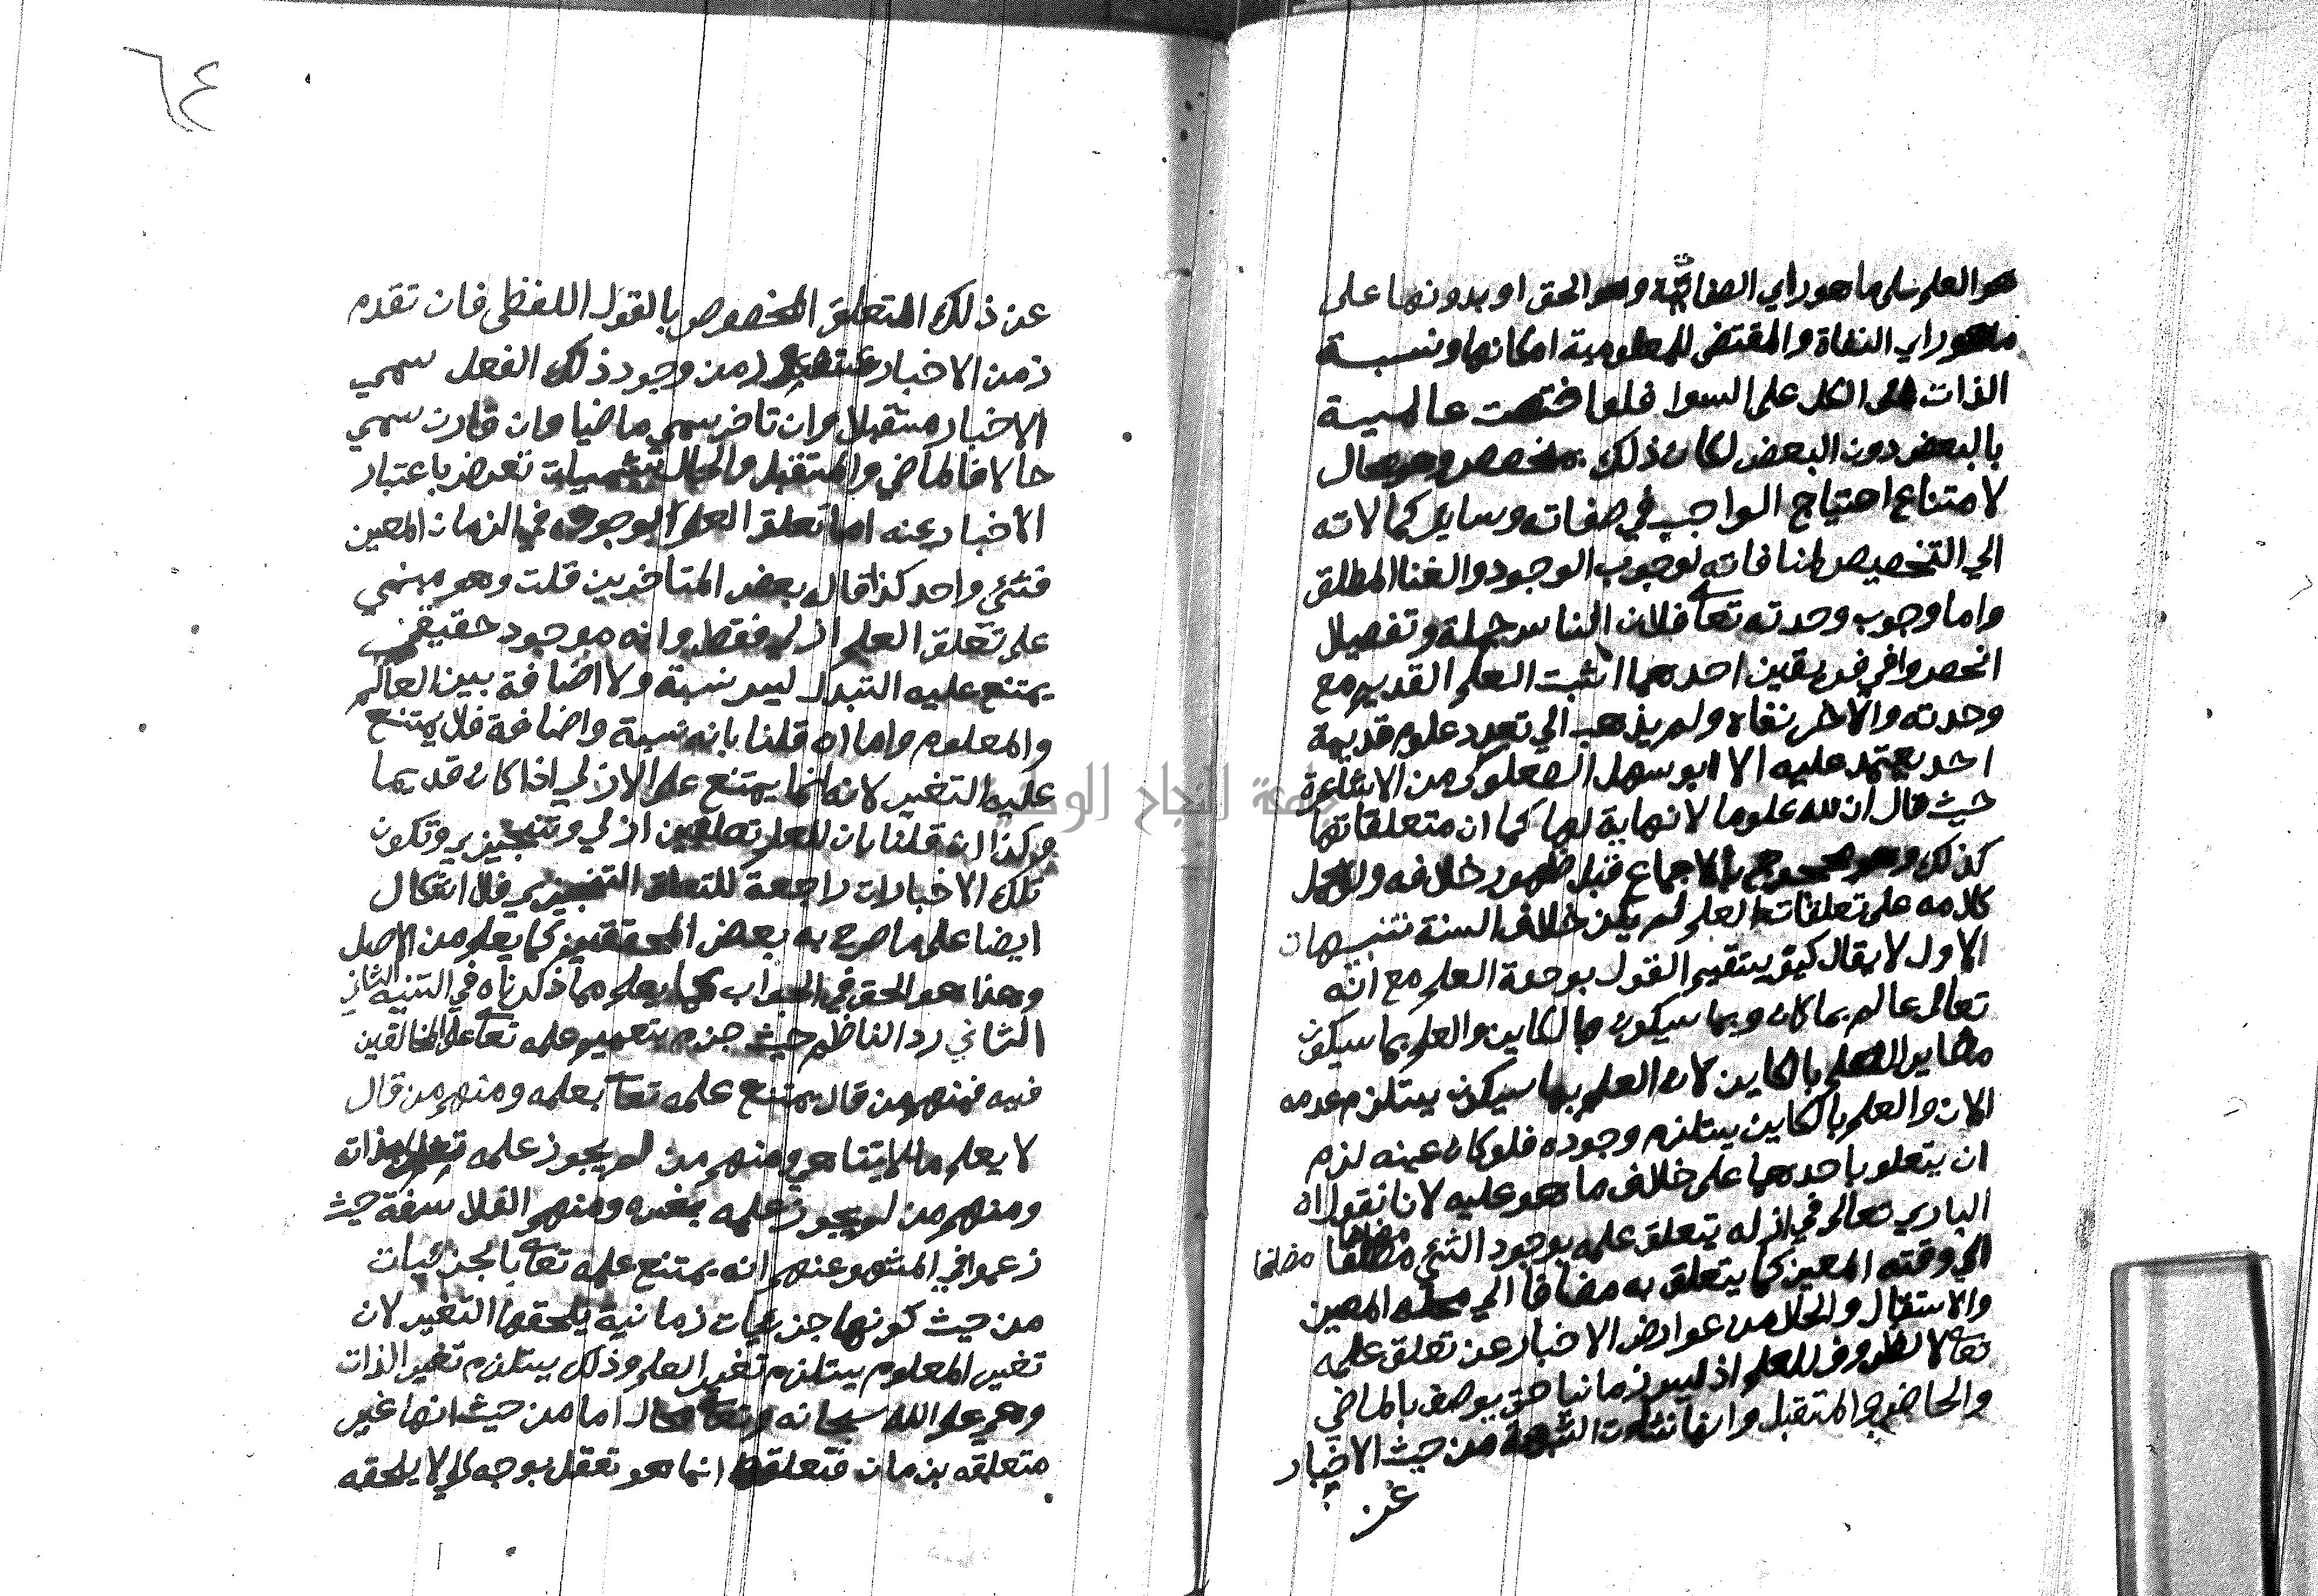 هو العلم على ما هو راي الصفاتية وهو الحق او بدونها على
ما هو راي النفاة والمقتضي للمعلومية امكانها ونسبة
الذات الى الكل على السوا فلو اختصت عالمية
بالبعض دون البعض لكان ذلك بمخصص وهو محال
لامتناع احتياج الواجب في صفاته وساير كمالاته
الي التخصيص لمنافاته لوجوب الوجود والغنا المطلق
واما وجوب وحدته تعا فلان الناس جملة وتفصيلا
انحصروا في فريقين احدهما اثبت العلم القديم مع
وحدته والآخر نفاه ولم يذهب الي تعدد علوم قديمة
احد يعتمد عليه الا ابو سهل الصعلوكي من الاشاعرة
حيث قال ان لله علوما لا نهاية لها كما ان متعلقاتها
كذلك وهو محجوج بالاجماع قبل ظهور خلافه ولو حمل
كلامه على تعلقات العلم لم يكن خلاف السنة تنبيهات
الاول لا يقال كيف يستقيم القول بوحدة العلم مع انه
تعالى عالم بما كان وبما سيكون وبالكاين والعلم بما سيكون
مغاير للعلم بالكاين لان العلم بما سيكون يستلزم عدمه
الان والعلم بالكاين يستلزم وجوده فلو كان عينه لزم
ان يتعلق باحدهما على خلاف ما هو عليه لانا نقول ان
الباري تعالى في ازله يتعلق علمه بوجود الشي مضافا مضافا
الي وقته المعين كما يتعلق به مضافا الي محله المعين
والاستقبال والحال من عوارض الاخبار عن تعلق علمه
تعا لا ظروف للعلم اذ ليس زمانيا حتى يوصف بالماضي
والحاضر والمستقبل وانما نشات الشبهة من حيث الاخبار
عن
٦٤
عن ذلك التعلق المخصوص بالقول اللفظي فان تقدم
زمن الاخبار من وجود ذلك الفعل سمي
الاخبار مستقبلا وان تاخر سمي ماضيا وان قارن سمي
حالا فالماضي والمستقبل والحال تسميات تعرض باعتبار
الاخبار عنه اما تعلق العلم بوجوده في الزمان المعين
فشي واحد كذا قاله بعض المتاخرين قلت وهو مبني
على تعلق العلم ازلي فقط وانه موجود حقيقي
يمتنع عليه التبدل ليس نسبة ولا اضافة بين العالم
والمعلوم واما ان قلنا بانه نسبة واضافة فلا يمتنع
عليه التغير لانه انما يمتنع على الازلي اذا كان قديما
وكذا ان قلنا بان للعلم تعلقين ازلي وتنجيزي وتكون
تلك الاخبارات راجعة للتعلق التنجيزي فلا اشكال
ايضا على ما صرح به بعض المحققين كما يعلم من الاصل
وهذا هو الحق في الجواب كما يعلم مما ذكرناه في التنبيه الثاني
الثاني رد الناظم حيث جزم بتعميم علمه تعا على المخالفين
فيه فمنهم من قال يمتنع علمه تعا بعلمه ومنهم من قال
لا يعلم ما لا يتناهي ومنهم من لم يجوز علمه تعالى بذاته
ومنهم من لم يجوز علمه بغيره ومنهم الفلاسفة حيث
زعموا في المشهور عنهم انه يمتنع علمه تعا بالجزئيات
من حيث كونها جزئيات زمانية يلحقها التغير لان
تغير المعلوم يستلزم تغير العلم وذلك يستلزم تغير الذات
وهو على الله سبحانه وتعا محال اما من حيث انها غير
متعلقه بزمان فتعلقها انما هو تعقل بوجه كلي لا يلحقه
جامعة النجاح الوطنية